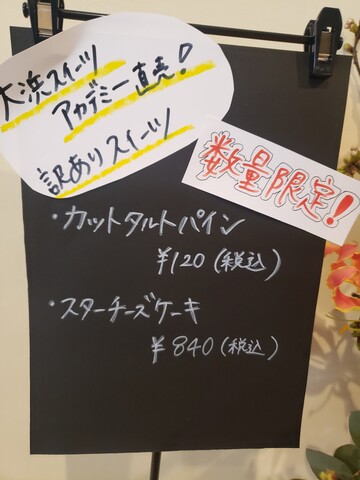 大浜スイーツ
アカデミー直売！
訳ありスイーツ
数量限定！
・カットタルトパイン
¥120（税込）
・スターチーズケーキ
¥840（税込）